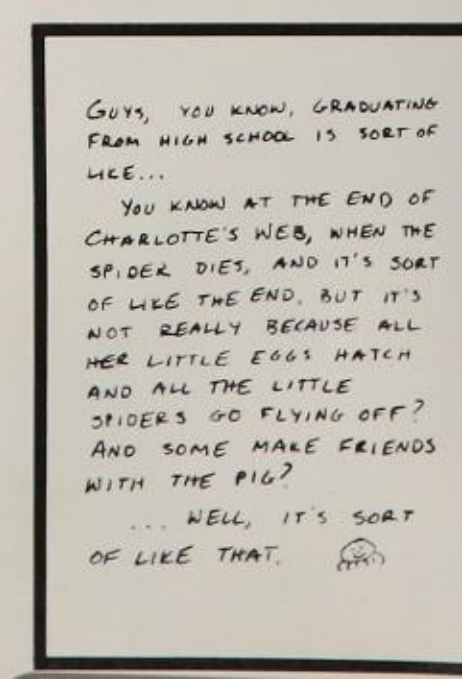 GUYS, YOU KNOW, GRADUATING
FROM HIGH SCHOOL IS SORT OF
LIKE...
YOU KNOW AT THE END OF
CHARLOTTE'S WEB, WHEN THE
SPIDER DIES, AND IT'S SORT
OF LIKE THE END, BUT IT'S
NOT REALLY BECAUSE ALL
HER LITTLE EGGS HATCH
AND ALL THE LITTLE
SPIDERS GO FLYING OFF?
AND SOME MAKE FRIENDS
WITH THE PIG?
... WELL, IT'S SORT
OF LIKE THAT.